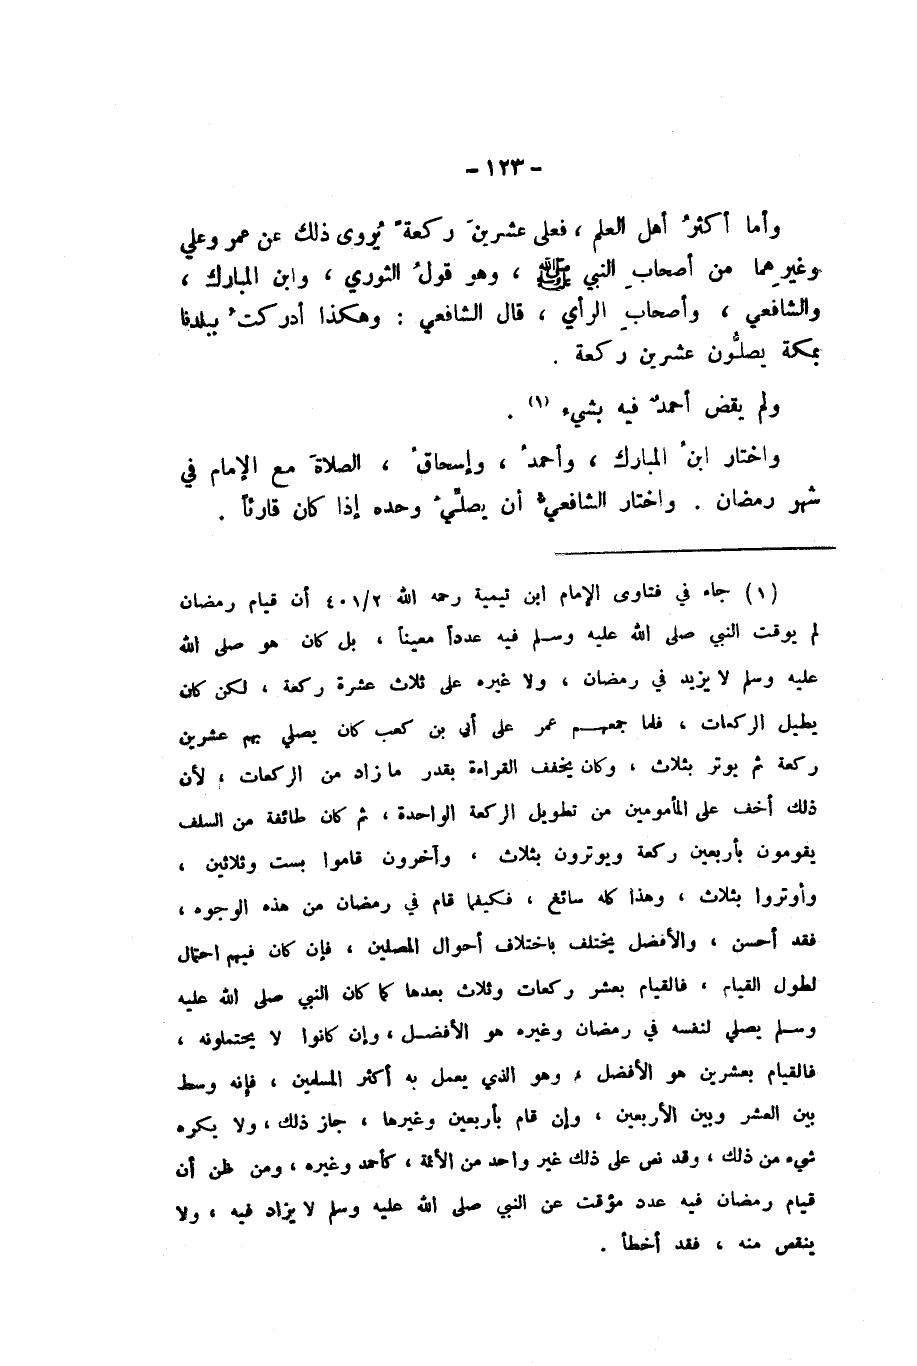 - ١٢٣ -
وأما أكثرُ أهل العلم ، فعلى عشرينَ ركعةً يُروى ذلك عن عمر وعلي
وغيرِهما من أصحابِ النبي ﷺ ، وهو قولُ الثوري ، وابن المبارك ،
والشافعي ، وأصحابِ الرأي ، قال الشافعي : وهكذا أدركتُ ببلدنا
بمكة يصلُّون عشرين ركعة .
ولم يقض أحمدُ فيه بشيء (١) .
واختار ابنُ المبارك ، وأحمدُ ، وإسحاقُ ، الصلاةَ مع الإمام في
شهر رمضان . واختار الشافعيُّ أن يصلِّيَ وحده إذا كان قارئاً .
(١) جاء في فتاوى الإمام ابن تيمية رحمه الله ٤٠١/٢ أن قيام رمضان
لم يوقت النبي صلى الله عليه وسلم فيه عدداً معيناً ، بل كان هو صلى الله
عليه وسلم لا يزيد في رمضان ، ولا غيره على ثلاث عشرة ركعة ، لكن كان
يطيل الركعات ، فلما جمعهم عمر على أبي بن كعب كان يصلي بهم عشرين
ركعة ثم يوتر بثلاث ، وكان يخفف القراءة بقدر ما زاد من الركعات ، لأن
ذلك أخف على المأمومين من تطويل الركعة الواحدة ، ثم كان طائفة من السلف
يقومون بأربعين ركعة ويوترون بثلاث ، وآخرون قاموا بست وثلاثين ،
وأوتروا بثلاث ، وهذا كله سائغ ، فكيفما قام في رمضان من هذه الوجوه ،
فقد أحسن ، والأفضل يختلف باختلاف أحوال المصلين ، فإن كان فيهم احتمال
لطول القيام ، فالقيام بعشر ركعات وثلاث بعدها كما كان النبي صلى الله عليه
وسلم يصلي لنفسه في رمضان وغيره هو الأفضل ، وإن كانوا لا يحتملونه ،
فالقيام بعشرين هو الأفضل ، وهو الذي يعمل به أكثر المسلمين ، فإنه وسط
بين العشر وبين الأربعين ، وإن قام بأربعين وغيرها ، جاز ذلك ، ولا يكره
شيء من ذلك ، وقد نص على ذلك غير واحد من الأئمة ، كأحمد وغيره ، ومن ظن أن
قيام رمضان فيه عدد مؤقت عن النبي صلى الله عليه وسلم لا يزاد فيه ، ولا
ينقص منه ، فقد أخطأ .